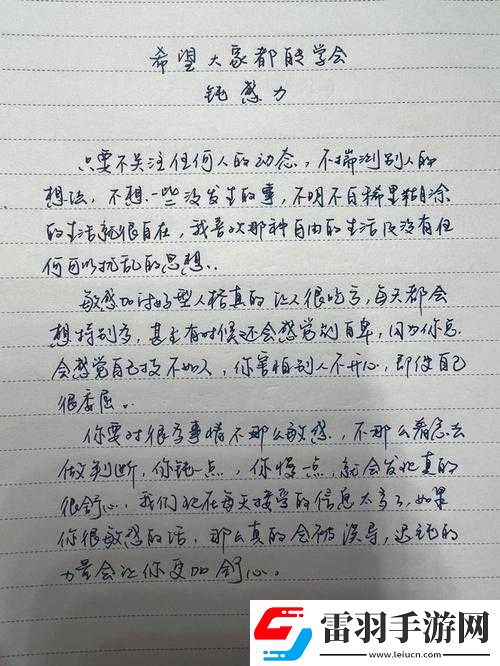 希望大家都能学会
钝感力
只要不关注任何人的动态，不揣测别人的
想法，不想一些没发生的事，不明不白稀里糊涂
的生活就很自在，我喜欢那种自由的生活，没有任
何可以扰乱的思想．
敏感加讨好型人格真的让人很吃亏，每天都会
想特别多，甚至有时候还会感觉到自卑，因为你总
会感觉自己技不如人，你害怕别人不开心，即使自己
很委屈。
你要对很多事情不那么敏感，不那么着急去
做判断，你钝一点，你慢一点，就会发现真的
很舒心，我们现在每天接受的信息太多了，如果
你很敏感的话，那么真的会被误导，迟钝的
力量会让你更加舒心。
雷羽手游网
www.leiucn.com